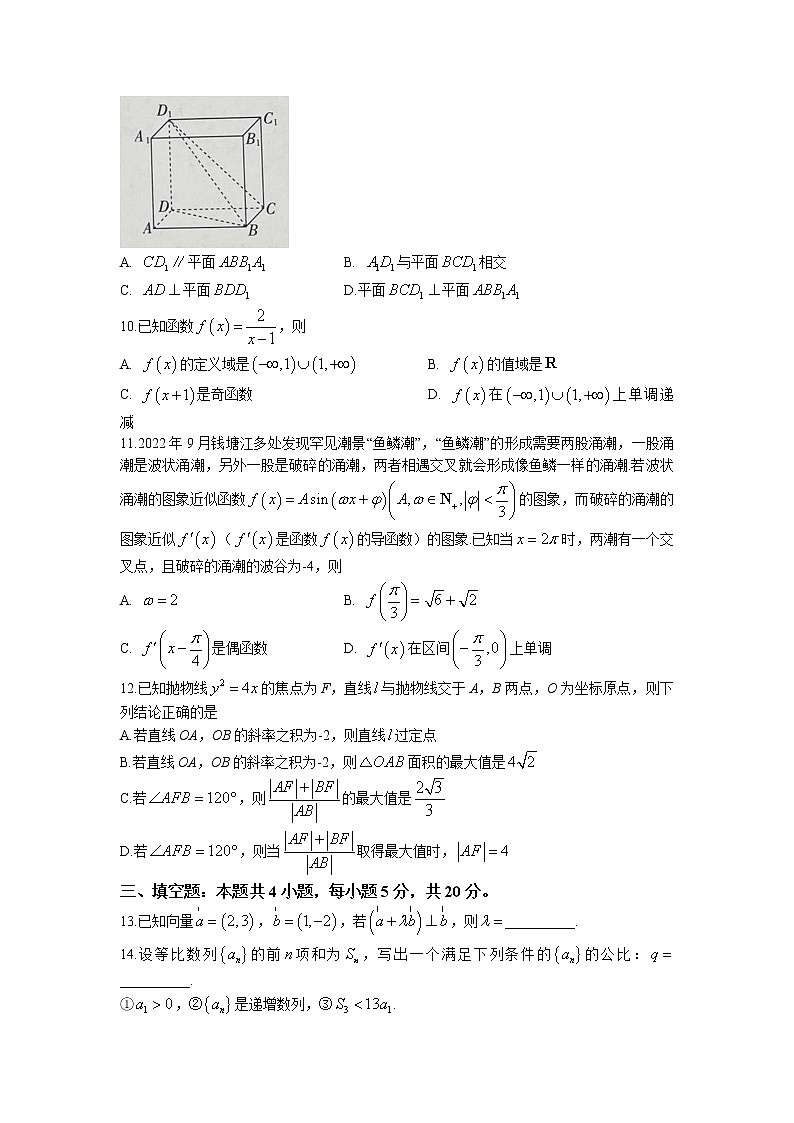 D₁ C₁
A₁ B₁
D C
A B
A. CD₁ // 平面 ABB₁A₁ B. A₁D₁与平面 BCD₁相交
C. AD⊥平面 BDD₁ D.平面 BCD₁⊥平面 ABB₁A₁
10.已知函数 f(x)=2/(x−1)，则
A. f(x)的定义域是(−∞,1)∪(1,+∞) B. f(x)的值域是R
C. f(x+1)是奇函数 D. f(x)在(−∞,1)∪(1,+∞)上单调递
减
11.2022年9月钱塘江多处发现罕见潮景“鱼鳞潮”，“鱼鳞潮”的形成需要两股涌潮，一股涌
潮是波状涌潮，另外一股是破碎的涌潮，两者相遇交叉就会形成像鱼鳞一样的涌潮.若波状
涌潮的图象近似函数 f(x)=Asin(ωx+φ)(A,ω∈N₊,|φ|<π/3)的图象，而破碎的涌潮的
图象近似 f′(x)（f′(x)是函数 f(x)的导函数）的图象.已知当 x=2π时，两潮有一个交
叉点，且破碎的涌潮的波谷为-4，则
A. ω=2 B. f(π/3)=√6+√2
C. f′(x−π/4)是偶函数 D. f′(x)在区间(−π/3,0)上单调
12.已知抛物线 y²=4x的焦点为 F，直线 l 与抛物线交于 A，B 两点，O 为坐标原点，则下
列结论正确的是
A.若直线 OA，OB 的斜率之积为-2，则直线 l 过定点
B.若直线 OA，OB 的斜率之积为-2，则△OAB面积的最大值是4√2
C.若∠AFB=120°，则(|AF|+|BF|)/|AB|的最大值是2√3/3
D.若∠AFB=120°，则当(|AF|+|BF|)/|AB|取得最大值时，|AF|=4
三、填空题：本题共4小题，每小题5分，共20分。
13.已知向量 a=(2,3)，b=(1,−2)，若(a+λb)⊥b，则λ=__________.
14.设等比数列{aₙ}的前 n 项和为 Sₙ，写出一个满足下列条件的{aₙ}的公比：q=
__________.
①a₁>0，②{aₙ}是递增数列，③S₃<13a₁.